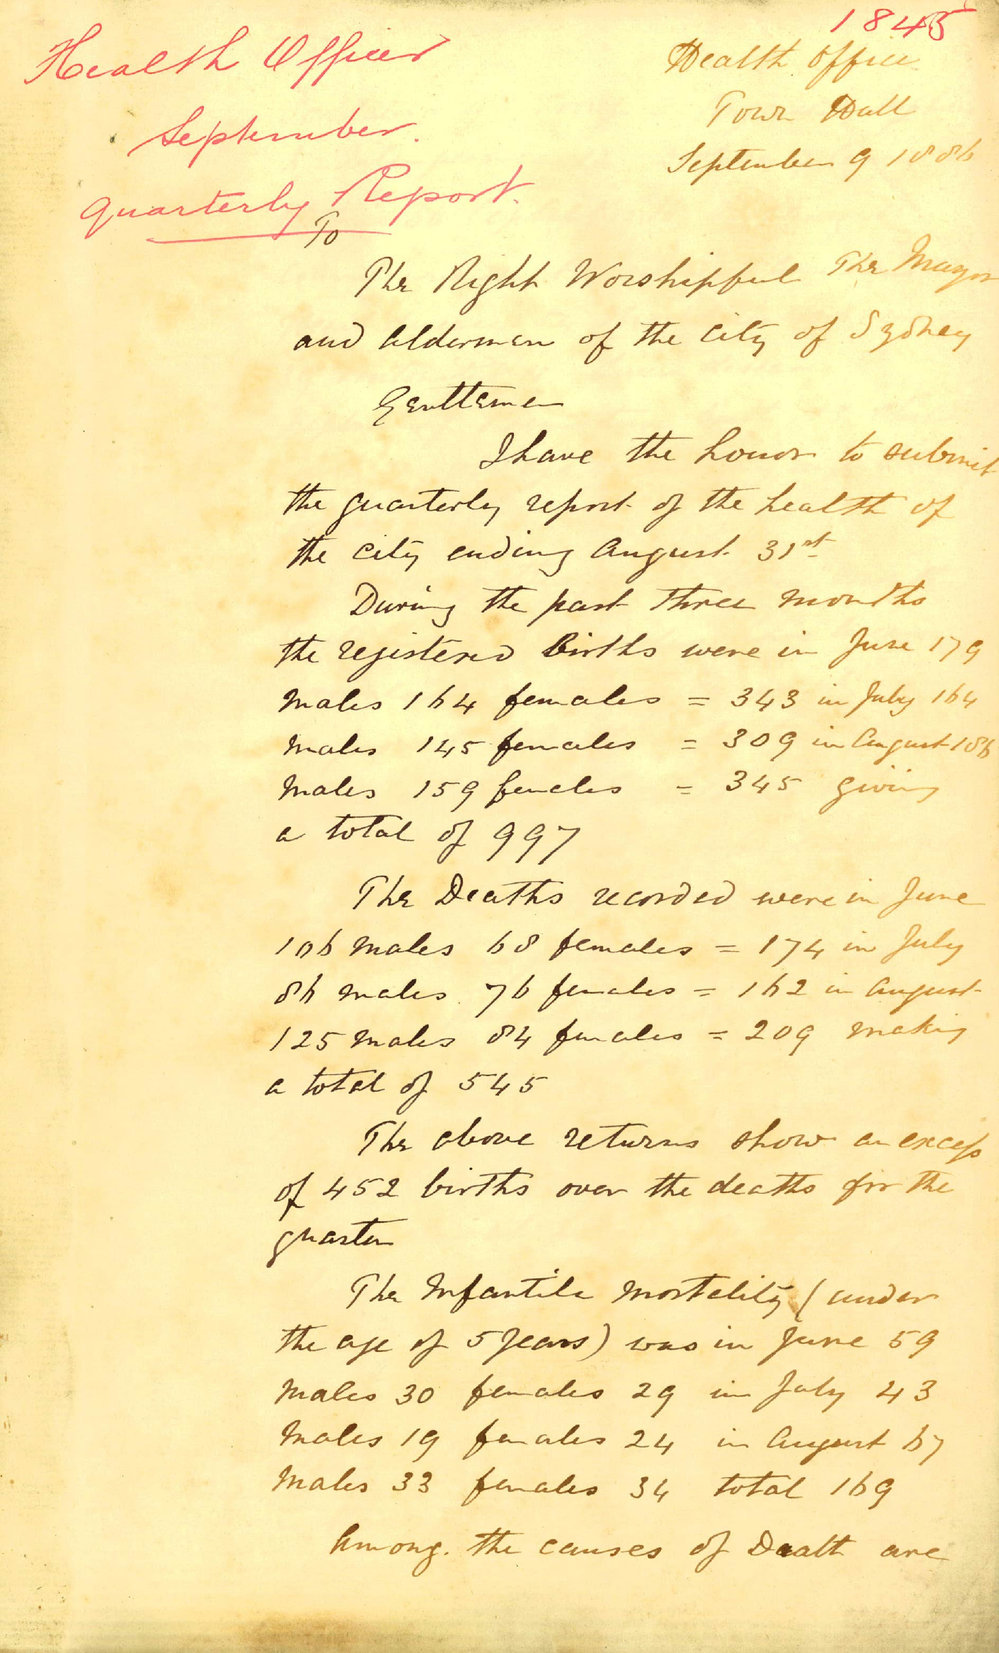 1845
Health Officer
September
Quarterly Report.
Health Office
Town Hall
September 9 1886
To
The Right Worshipful The Mayor
and Aldermen of the City of Sydney
Gentlemen
I have the honor to submit
the quarterly report of the health of
the City ending August 31st
During the past three months
the registered births were in June 179
Males 164 females = 343 in July 164
Males 145 females = 309 in August 186
Males 159 females = 345 giving
a total of 997
The Deaths recorded were in June
106 Males 68 females = 174 in July
86 Males 76 females = 162 in August
125 Males 84 females = 209 making
a total of 545
The above returns show an excess
of 452 births over the deaths for the
quarter
The Infantile Mortality (under
the age of 5 years) was in June 59
Males 30 females 29 in July 43
Males 19 females 24 in August 67
Males 33 females 34 total 169
Among. the causes of Death are